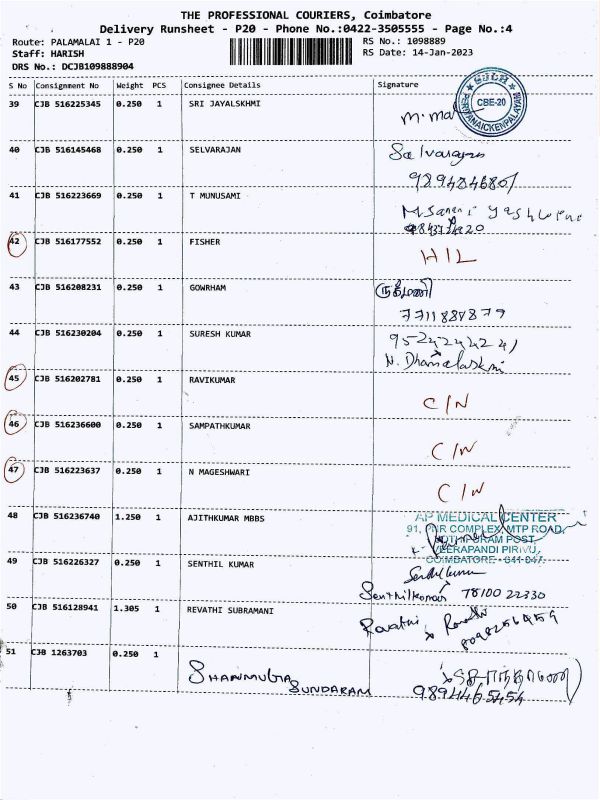 THE PROFESSIONAL COURIERS, Coimbatore
Delivery Runsheet - P20 - Phone No.:0422-3505555 - Page No.:4
Route: PALAMALAI 1 - P20
RS No.: 1098889
Staff: HARISH
RS Date: 14-Jan-2023
DRS No.: DCJB109888904
S No Consignment No Weight PCS Consignee Details Signature
39 CJB 516225345 0.250 1 SRI JAYALSKHMI
CBE-20
PERIYANAICKENPALAYAM
40 CJB 516145468 0.250 1 SELVARAJAN
41 CJB 516223669 0.250 1 T MUNUSAMI
42 CJB 516177552 0.250 1 FISHER H/L
43 CJB 516208231 0.250 1 GOWRHAM
ருக்மணி
44 CJB 516230204 0.250 1 SURESH KUMAR
N. Dhanalakshmi
45 CJB 516202781 0.250 1 RAVIKUMAR C/N
46 CJB 516236600 0.250 1 SAMPATHKUMAR C/N
47 CJB 516223637 0.250 1 N MAGESHWARI C/N
48 CJB 516236740 1.250 1 AJITHKUMAR MBBS
AP MEDICAL CENTER
91, PNR COMPLEX, MTP ROAD,
JOTHIPURAM POST,
VEERAPANDI PIRIVU,
COIMBATORE - 641 047.
49 CJB 516226327 0.250 1 SENTHIL KUMAR
Senthilkumar 78100 22330
50 CJB 516128941 1.305 1 REVATHI SUBRAMANI
Revathi
51 CJB 1263703 0.250 1 SHANMUGA
SUNDARAM 9894465454